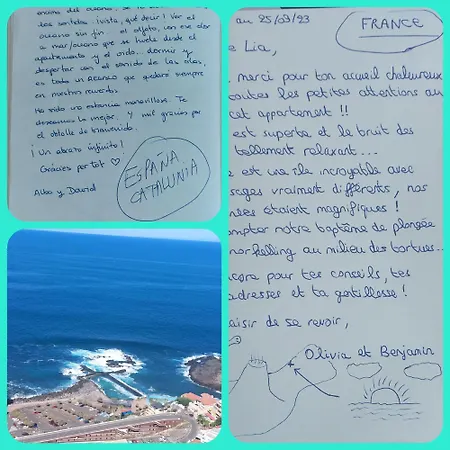 encima del océano, se
los sentidos. ¡vista, qué decir! Ver el
océano sin fin. el olfato, con ese olor
a mar/océano que se huele desde el
apartamento y el oído, dormir y
despertar con el sonido de las olas,
es todo un que quedará siempre
en nuestro recuerdo.
Ha sido una estancia maravillosa. Te
deseamos lo mejor. Y mil gracias por
el detalle de bienvenida.
¡Un abrazo infinito!
Gràcies per tot ♡
Alba y David
ESPAÑA
CATALUNIA
au 25/03/23
FRANCE
e Lia,
merci pour ton accueil chaleureux
toutes les petites attentions au
cet appartement !!
est superbe et le bruit des
tellement relaxant...
e est une île incroyable avec
sages vraiment différents, nos
nées étaient magnifiques !
ompter notre baptême de plongée
norkelling au milieu des tortues...
core pour tes conseils, tes
adresses et ta gentillesse !
aisir de se revoir,
Olivia et Benjamin